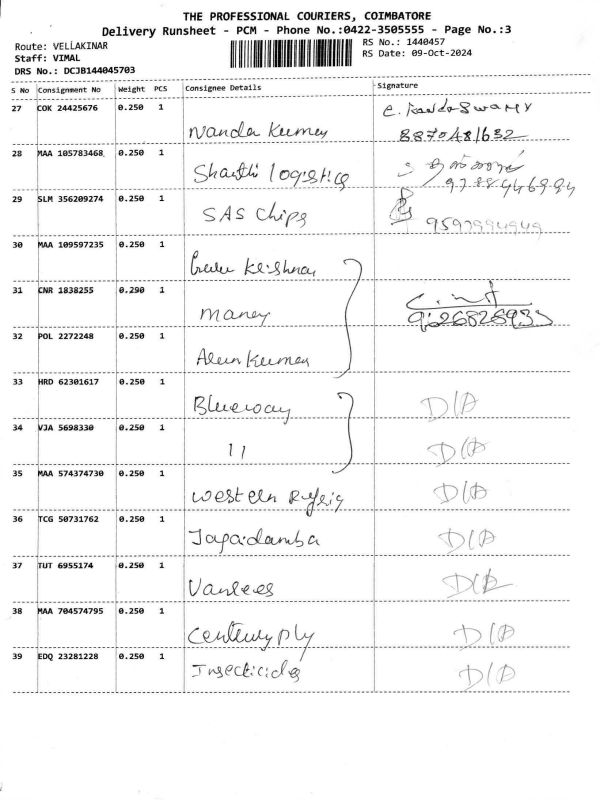 THE PROFESSIONAL COURIERS, COIMBATORE
Delivery Runsheet - PCM - Phone No.:0422-3505555 - Page No.:3
Route: VELLAKINAR
RS No.: 1440457
Staff: VIMAL
RS Date: 09-Oct-2024
DRS No.: DCJB144045703
S No Consignment No Weight PCS Consignee Details Signature
27 COK 24425676 0.250 1
Nanda Kumar 8870481632
28 MAA 105783468 0.250 1
Shakthi logistics
29 SLM 356209274 0.250 1
SAS Chips
30 MAA 109597235 0.250 1
Krishna
31 CNR 1838255 0.290 1
Maney
32 POL 2272248 0.250 1
Alun Kumar
33 HRD 62301617 0.250 1
Blueway D/A
34 VJA 5698330 0.250 1
11 D/A
35 MAA 574374730 0.250 1
Western D/A
36 TCG 50731762 0.250 1
Jagadamba D/A
37 TUT 6955174 0.250 1
D/A
38 MAA 704574795 0.250 1
Century Ply D/A
39 EDQ 23281228 0.250 1
Insecticides D/A